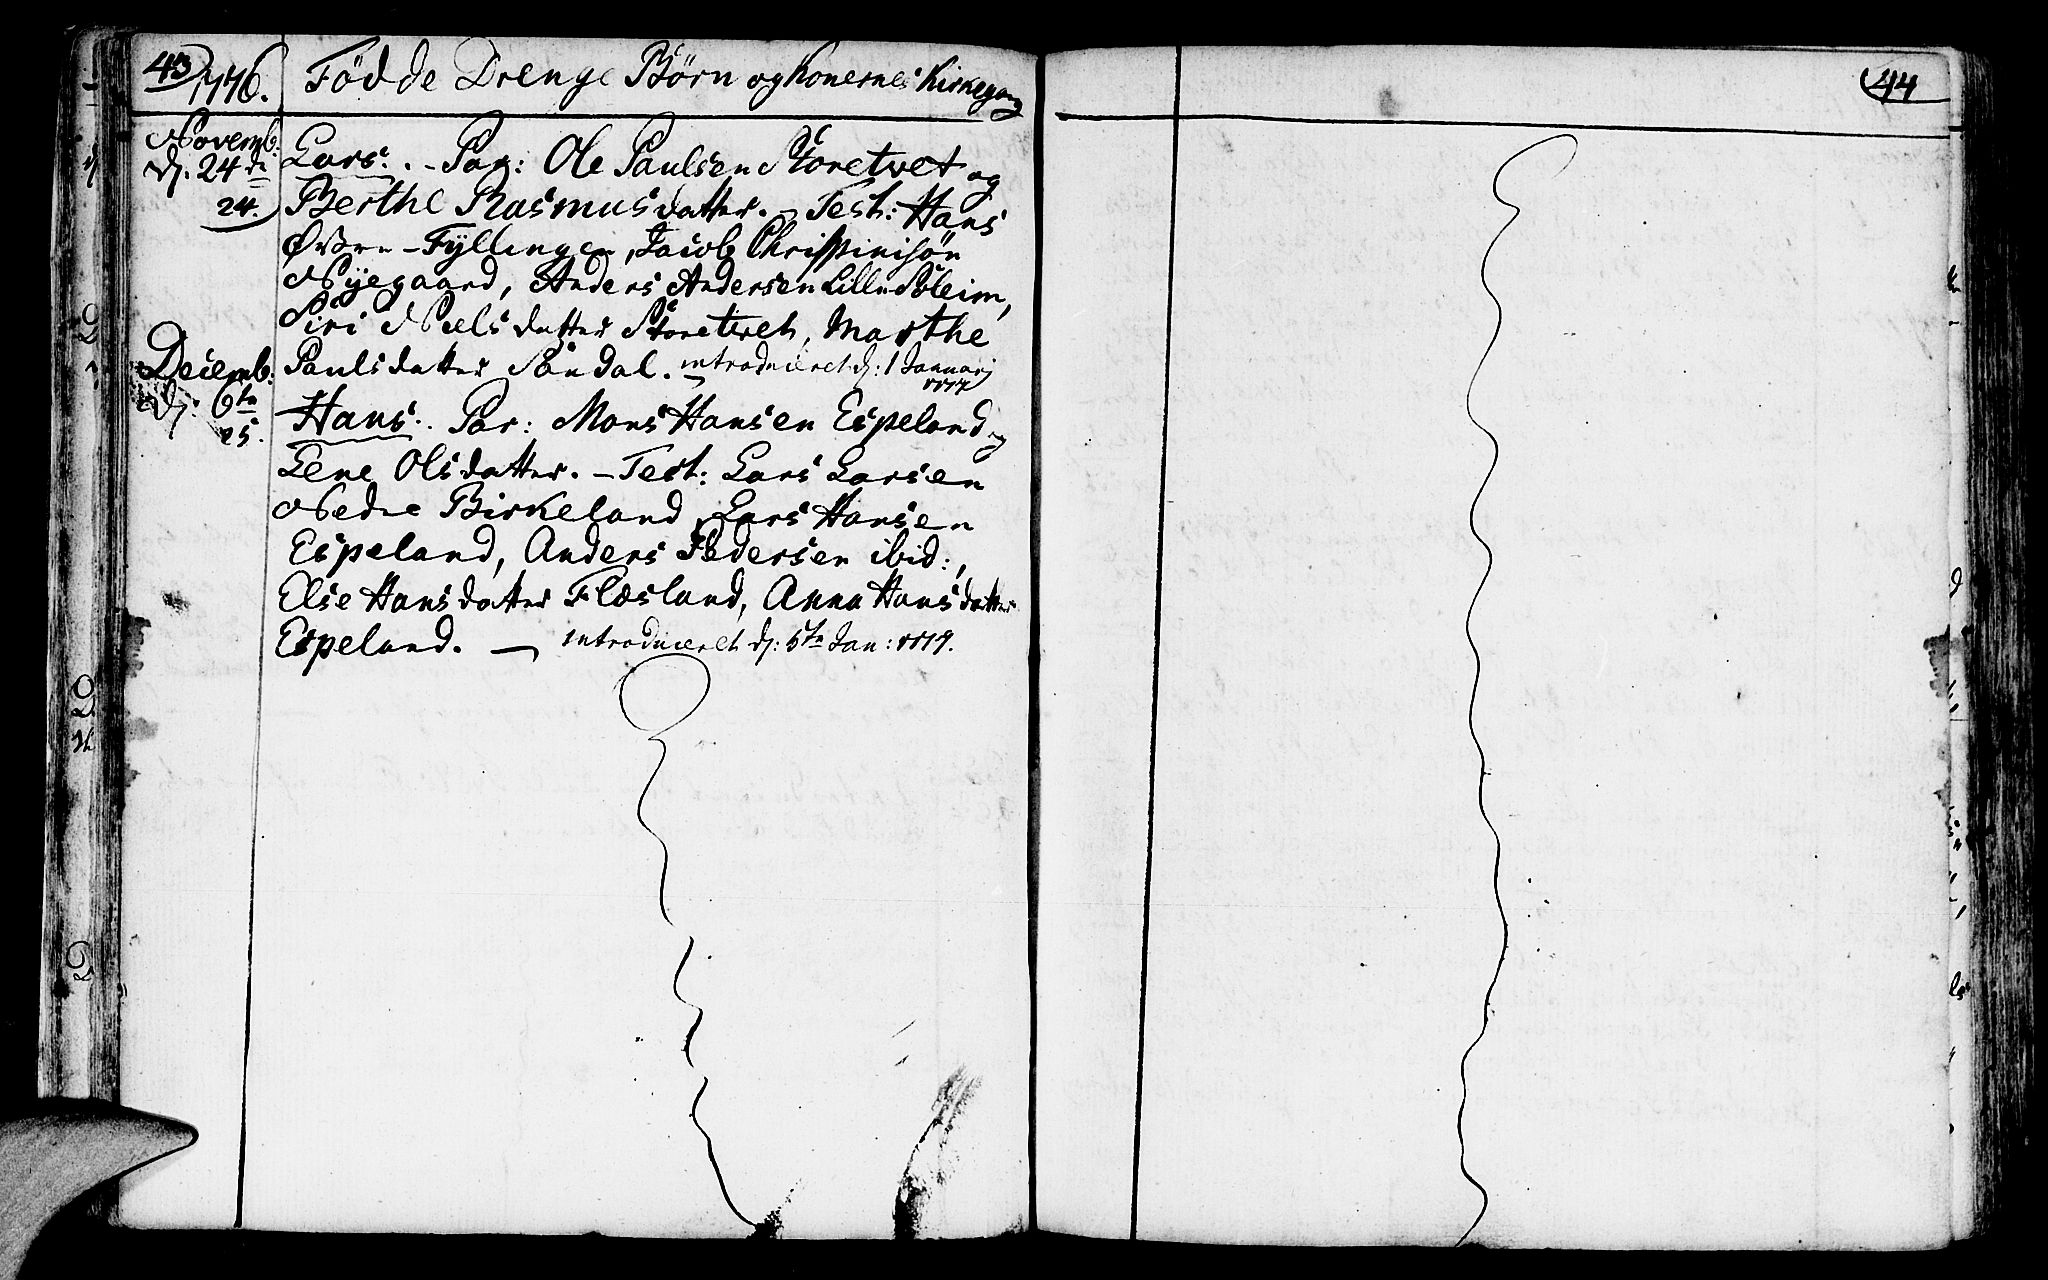 43
1776. Födde Drenge Börn og Konernes Kirkegang
Novemb:
Dj. 24de Lars. - Par: Ole Paulsen Storetvet og
24. Berthe Rasmusdatter. - Test: Hans
Øvre - Fÿllingen, Jacob Christinisön
Nÿegaard, Anders Andersen Lille Söleim,
Siri Nielsdatter Storetvet, Marthe
Decemb: Paulsdatter Sandal. - introduceret dj: 1 Januarj
1777
Dj. 6te Hans. Par: Mons Hansen Espeland og
25. Lene Olsdatter. - Test: Lars Larsen
Nedre Birkeland, Lars Hansen
Espeland, Anders Pedersen ibid:,
Else Hansdatter Flæsland, Anna Hansdatter
Espeland. - introduceret dj: 6te Jan: 1777.
44